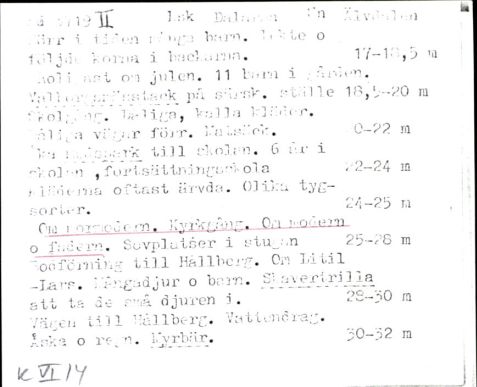 II Lsk Dalarna Un Älvdalen
förr i tiden många barn. Lekte o
följde korna i backarna. 17-18,5 m
Roligast om julen. 11 barn i gården.
Valborgsmässtack på särsk. ställe 18,5-20 m
Skolgång. Dåliga, kalla kläder.
Dåliga vägar förr. Matsäck. 20-22 m
till skolan. 6 år i
skolan ,fortsättningsskola 22-24 m
Kläderna oftast ärvda. Olika tyg-
sorter. 24-25 m
Om mormodern. Kyrkgång. Om modern
o fadern. Sovplatser i stugan 25-28 m
Bodförning till Hållberg. Om Litil
-Lars. Mångadjur o barn. Skavertrilla
att ta de små djuren i. 28-30 m
Vägen till Hållberg. Vattendrag.
Åska o regn. Myrbär. 30-32 m
K VI 14